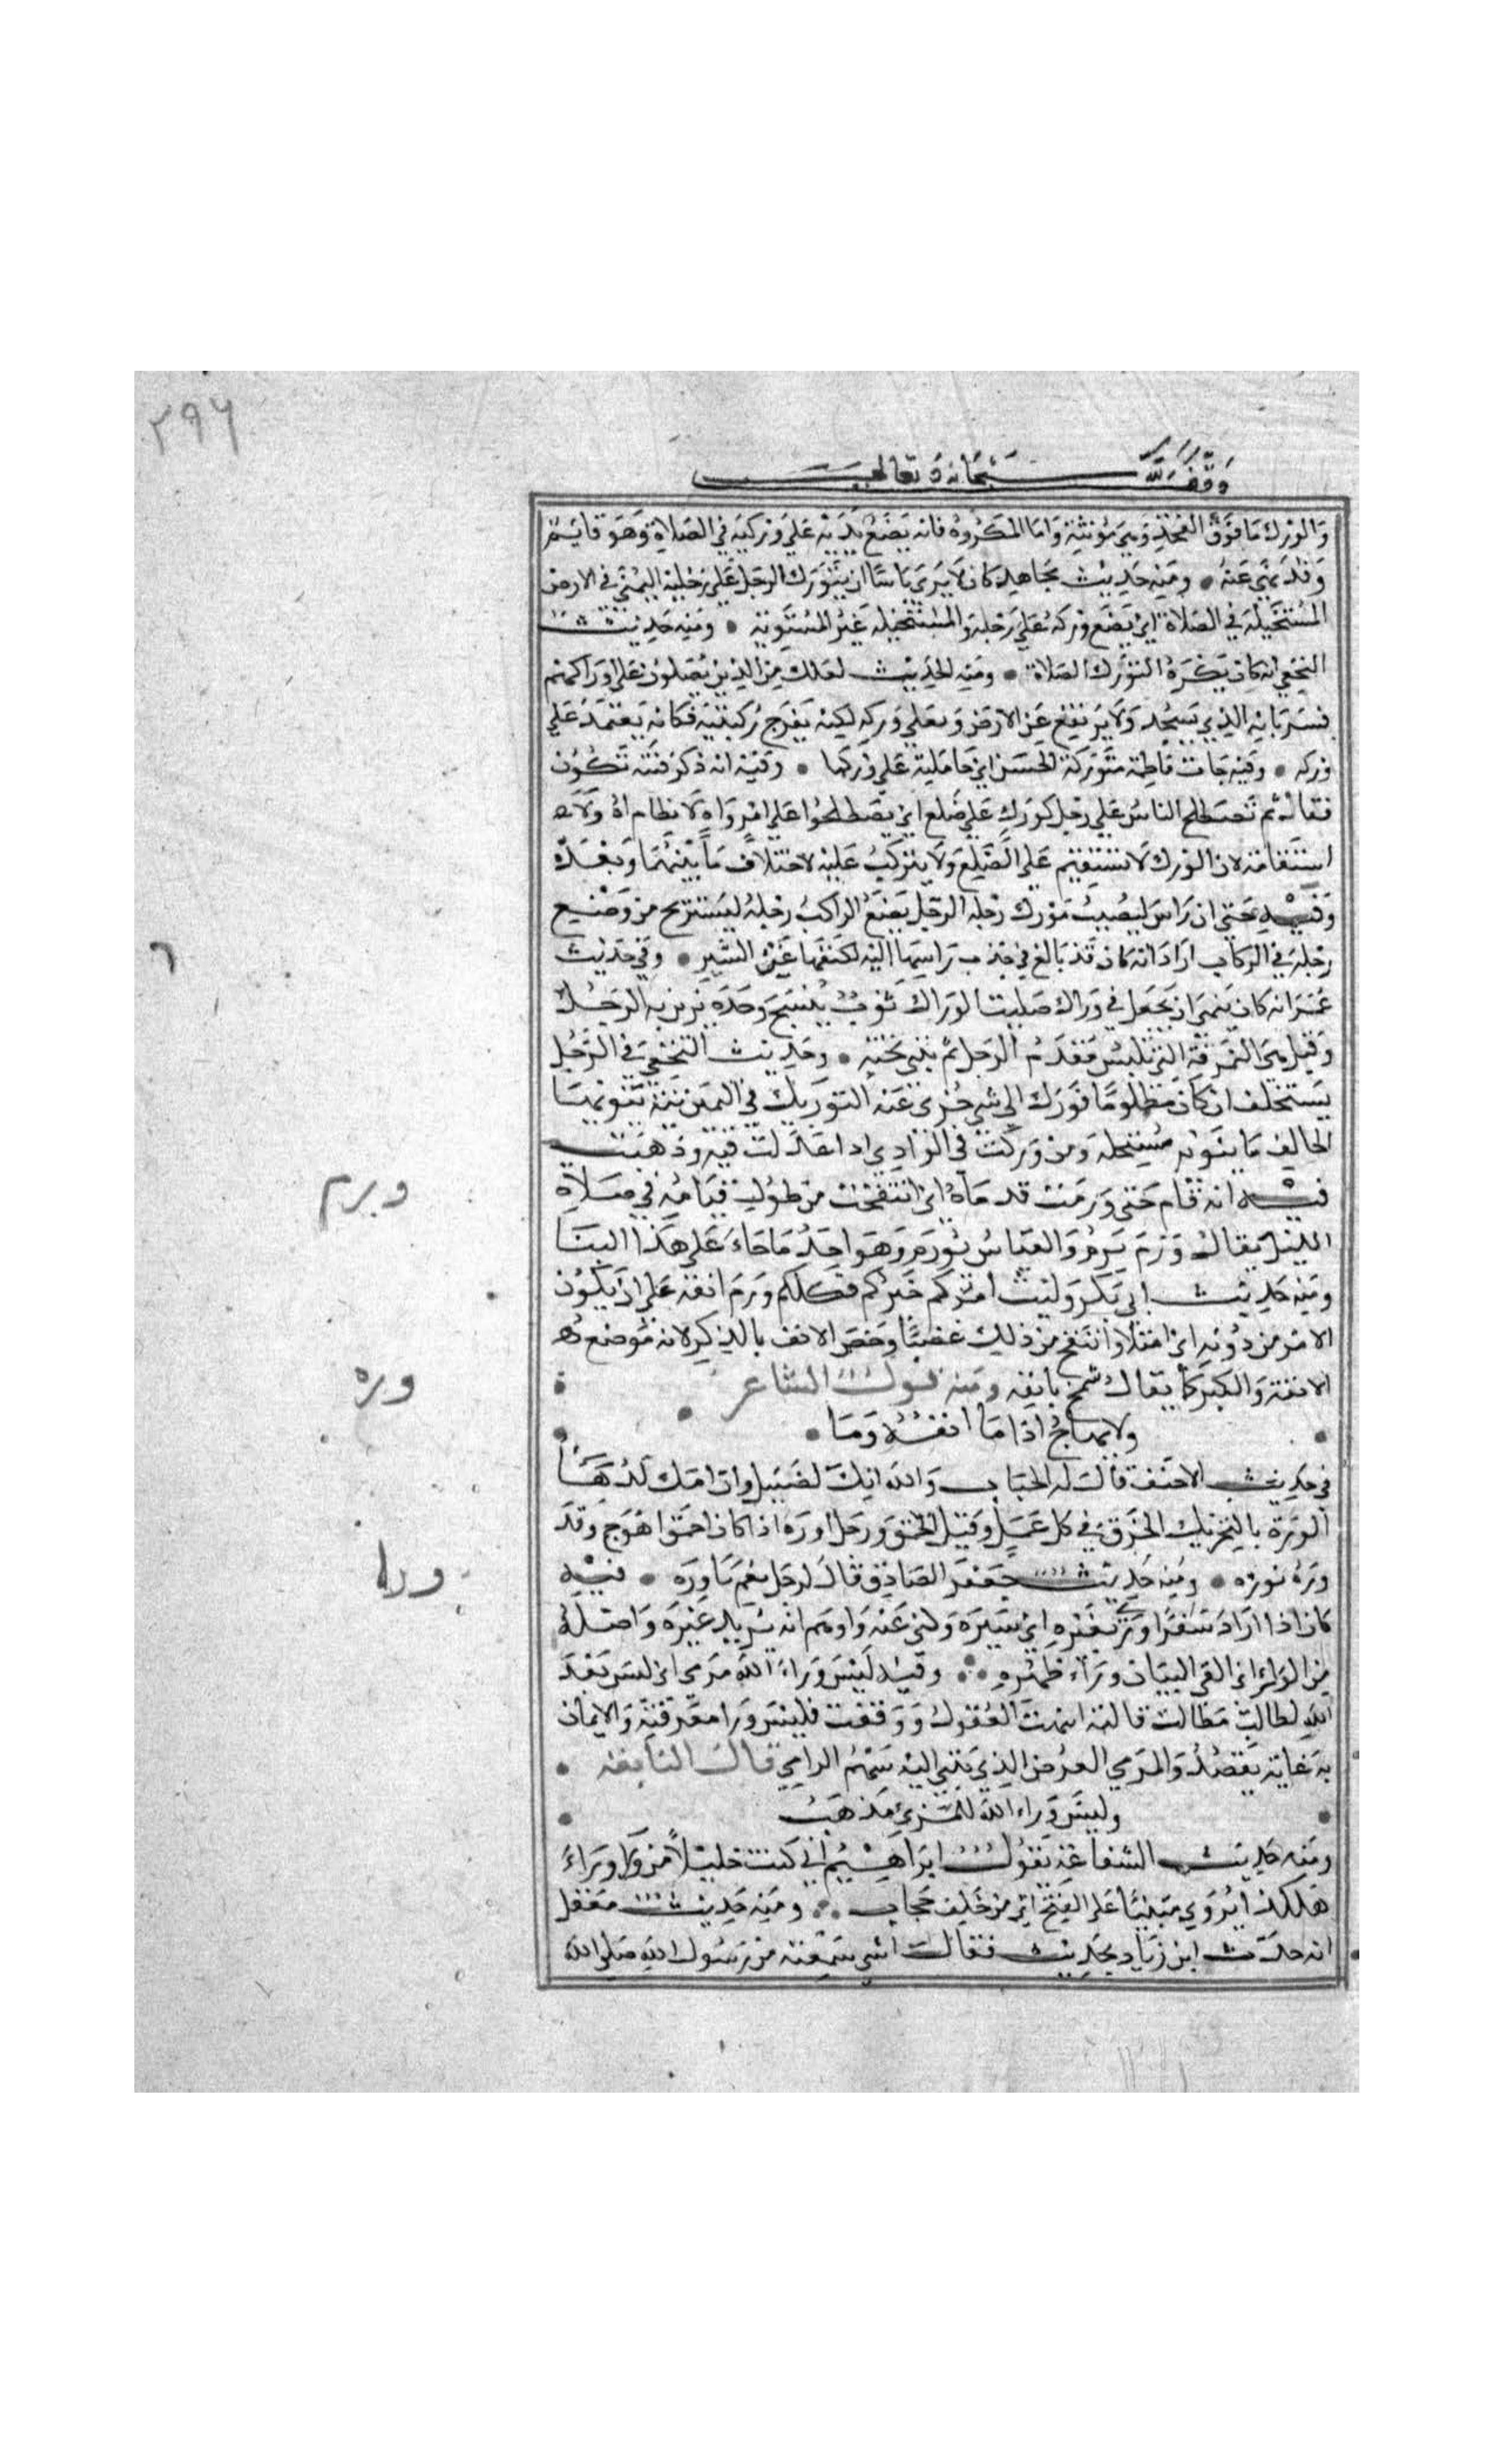 ٢٩٦
وقف لله سبحانه وتعالى
والورك ما فوق الفخذ وهي مؤنثة واما المكروه فانه يضع يديه على وركيه في الصلاة وهو قايم
وقد نهي عنه ومنه حديث مجاهد كان لا يرى باسا ان يتورك الرجل على رجليه اليمنى في الارض
المستحيلة في الصلاة اي يضع وركه على رجله والمستحيلة غير المستوية ومنه حديث
النخعي انه كان يكره التورك الصلاة ومنه الحديث لعلك من الذين يصلون على اوراكهم
فسر بانه الذي يسجد ولا يرتفع عن الارض ويعلي وركه لكنه يفرج ركبتيه فكانه يعتمد على
وركه وفيه جات فاطمة متوركة الحسن اي حاملته على وركها وفيه انه ذكر فتنه تكون
فقال ثم تصطلح الناس على رجل كورك على ضلع اي يصطلحوا على امر واه لا نظام له ولا
استقامة لان الورك لا تستقيم على الضلع ولا يتركب عليه لاختلاف ما بينهما وبعده
وفيه حتى ان راس ليصيب مورك رجله الرجل يضع الراكب رجله ليستريح من وضع
رجله في الركاب اراد انه كان قد بالغ في جذب راسها اليه لكفها عن السير وفي حديث
عمر انه كان ينهى ان يجعل في وراك صليب الوراك ثوب ينسج وحده يزين به الرجل
وقيل هي النمرقة التي تلبس مقدم الرجل ثم تثنى تحته وحديث النخعي في الرجل
يستحلف ان كان مظلوما فورك الى شي جزى عنه التوريك في اليمين نية ينويها
الحالف ما ينويه مستحلفه ومن وركت في الوادي اذا عدلت فيه وذهبت
فيه انه قام حتى ورمت قدماه اي انتفخت من طول قيامه في صلاة
الليل يقال ورم يرم والقياس يورم وهو احد ما جاء على هذا البنا
ومنه حديث ابي بكر وليت امركم خيركم فكلكم ورم انفه على ان يكون
الامر من دونه اي امتلا وانتفخ من ذلك غضبا وخص الانف بالذكر لانه موضع
الانفة والكبر كما يقال شمخ بانفه ومنه قول الشاعر
ولا يهاج اذا ما انفه وما
في حديث الاحنف قال له الحباب والله انك لضئيل وان امك لورهاء
الوره بالتحريك الخرق في كل عمل وقيل الحمق ورجل اوره اذا كان احمق اهوج وقد
وره يوره ومنه حديث جعفر الصادق قال لرجل نعم يا اوره فيه
كان اذا اراد سفرا ورى بغيره اي ستره وكنى عنه واوهم انه يريد غيره واصله
من الوراء اي القى البيان وراء ظهره وفيه ليس وراء الله مرمى اي ليس بعد
الله لطالب مطالب فاليه انتهت العقول ووقفت فليس ورا معرفته والايمان
به غاية تقصد والمرمى الغرض الذي ينتهي اليه سهم الرامي قال النابغه
وليس وراء الله للمرء مذهب
ومنه حديث الشفاعة يقول ابراهيم اني كنت خليلا من ورا وراء
هكذا يروى مبنيا على الفتح اي من خلف حجاب ومنه حديث معقل
انه حدث ابن زياد بحديث فقال اشي سمعته من رسول الله صلى الله
٦
ورم
وره
ورا